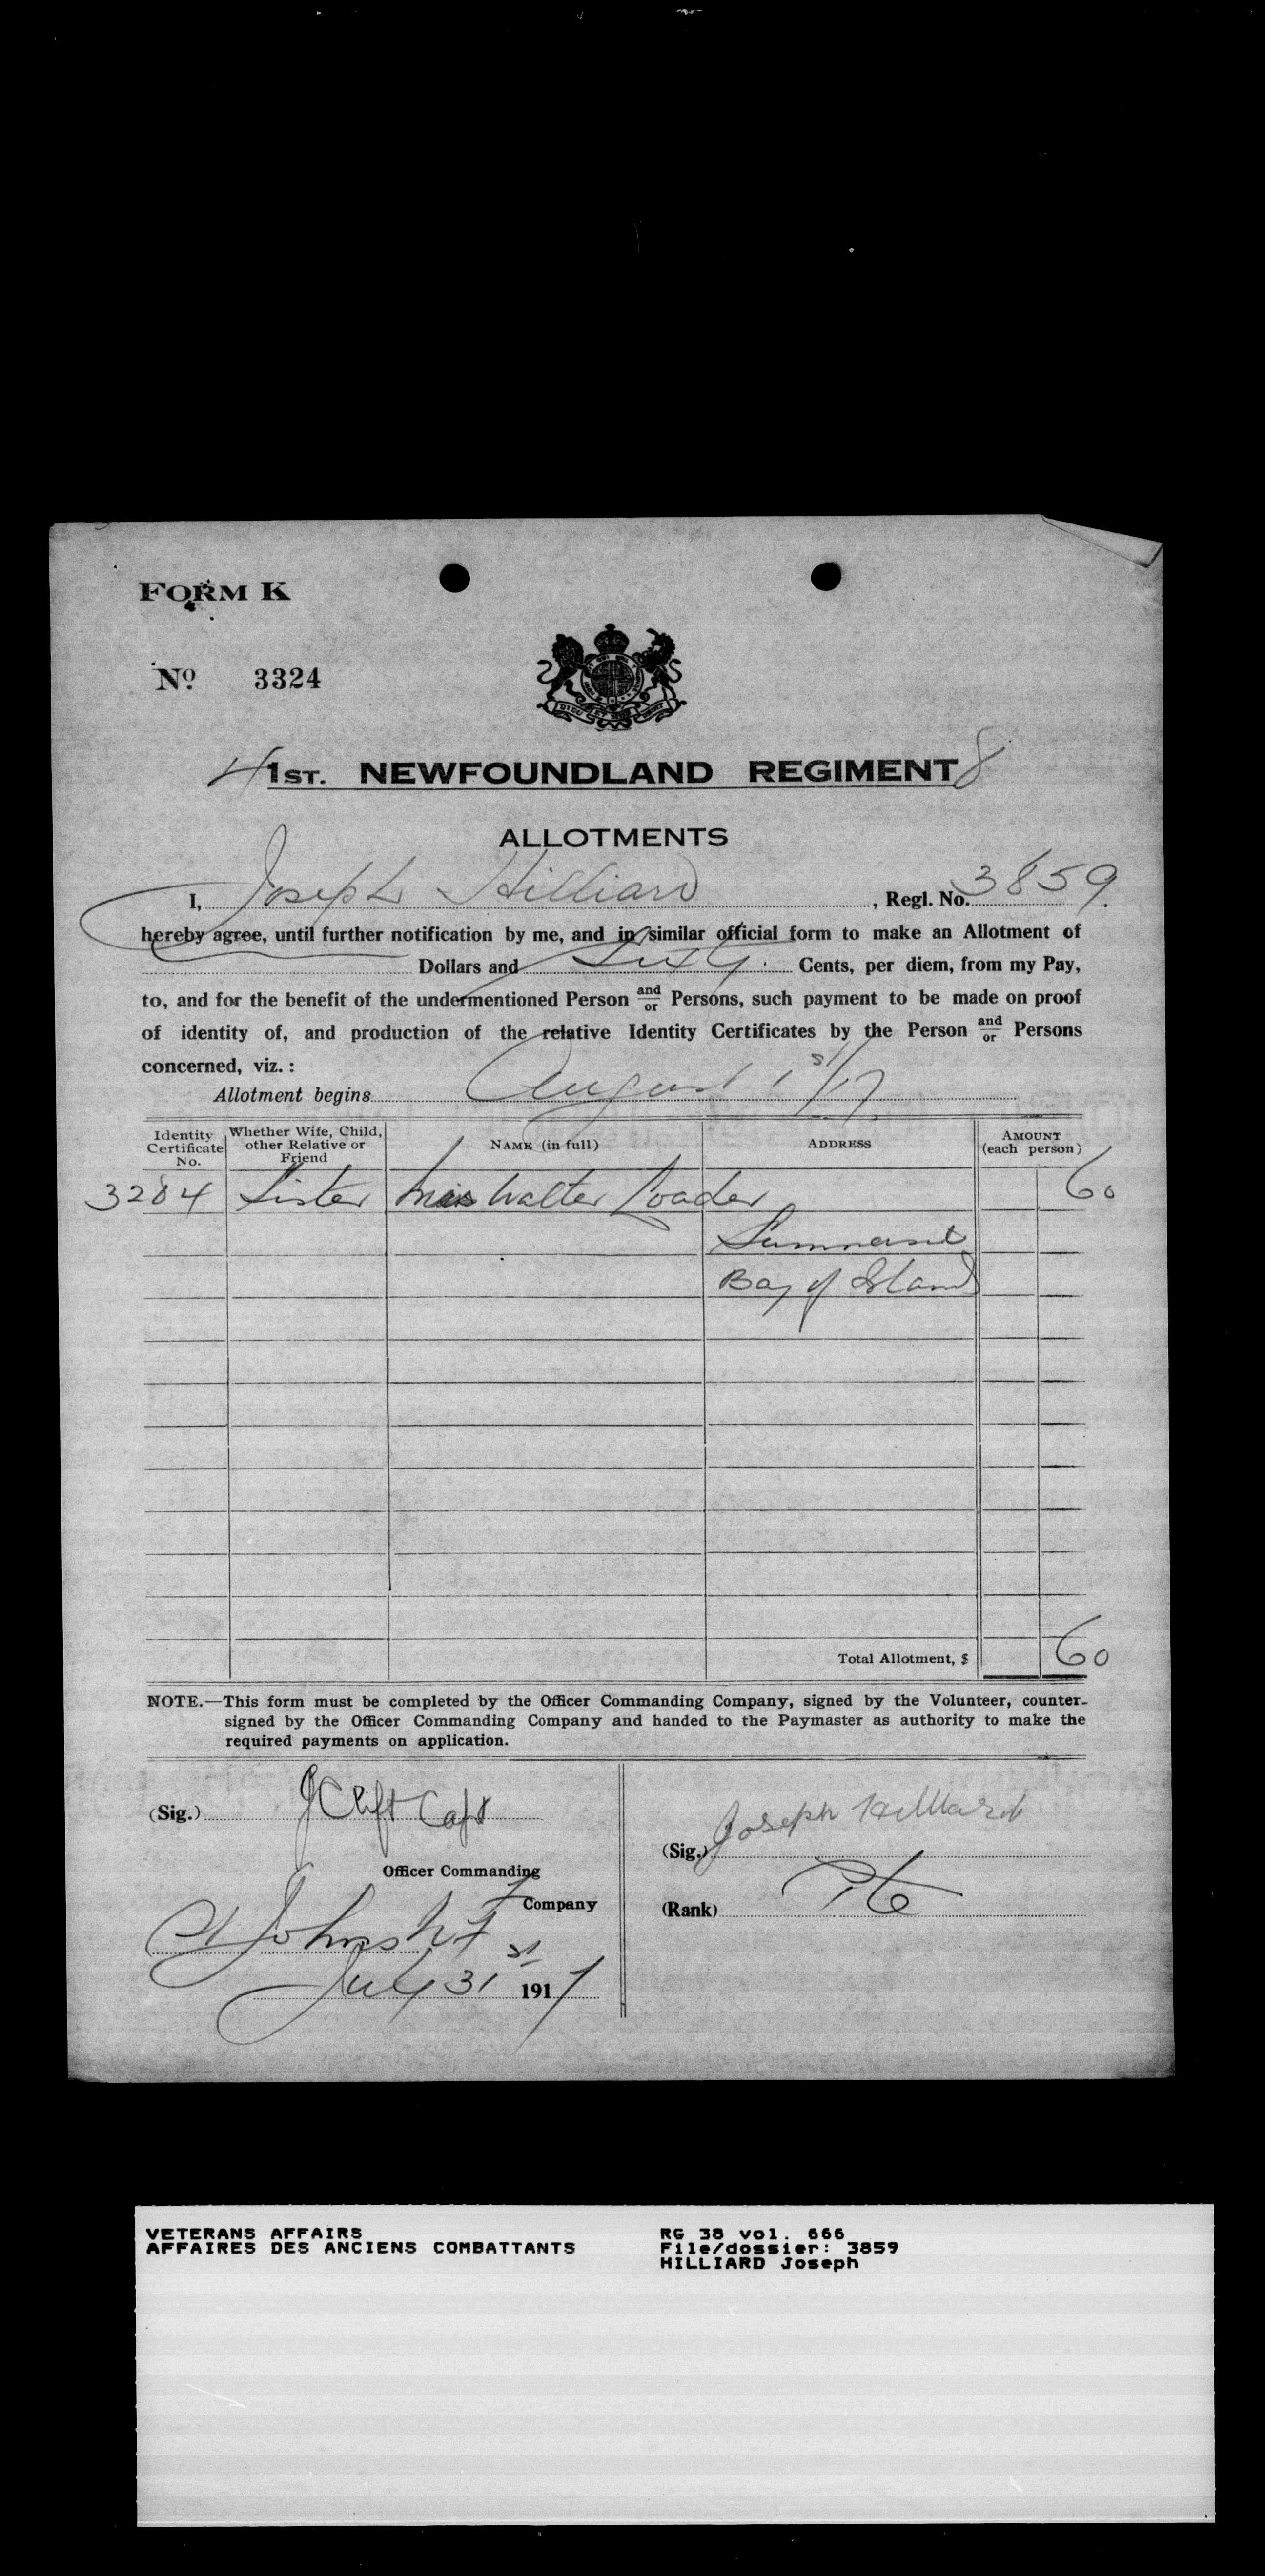 FORM K
No. 3324
4 1ST. NEWFOUNDLAND REGIMENT 8
ALLOTMENTS
I, Joseph Hilliard, Regl. No. 3859.
hereby agree, until further notification by me, and in similar official form to make an Allotment of
Dollars and Sixty. Cents, per diem, from my Pay,
to, and for the benefit of the undermentioned Person and/or Persons, such payment to be made on proof
of identity of, and production of the relative Identity Certificates by the Person and/or Persons
concerned, viz. :
Allotment begins August 1st/17
Identity Certificate No. Whether Wife, Child, other Relative or Friend NAME (in full) ADDRESS AMOUNT (each person)
3284 Sister Walter Loader 60
Bay of Island
Total Allotment, $ 60
NOTE.—This form must be completed by the Officer Commanding Company, signed by the Volunteer, counter-
signed by the Officer Commanding Company and handed to the Paymaster as authority to make the
required payments on application.
(Sig.) J Clift Capt
Officer Commanding
F Company
St Johns N F
July 31st 1917
(Sig.) Joseph Hilliard
(Rank) Pte
VETERANS AFFAIRS
AFFAIRES DES ANCIENS COMBATTANTS
RG 38 vol. 666
File/dossier: 3859
HILLIARD Joseph